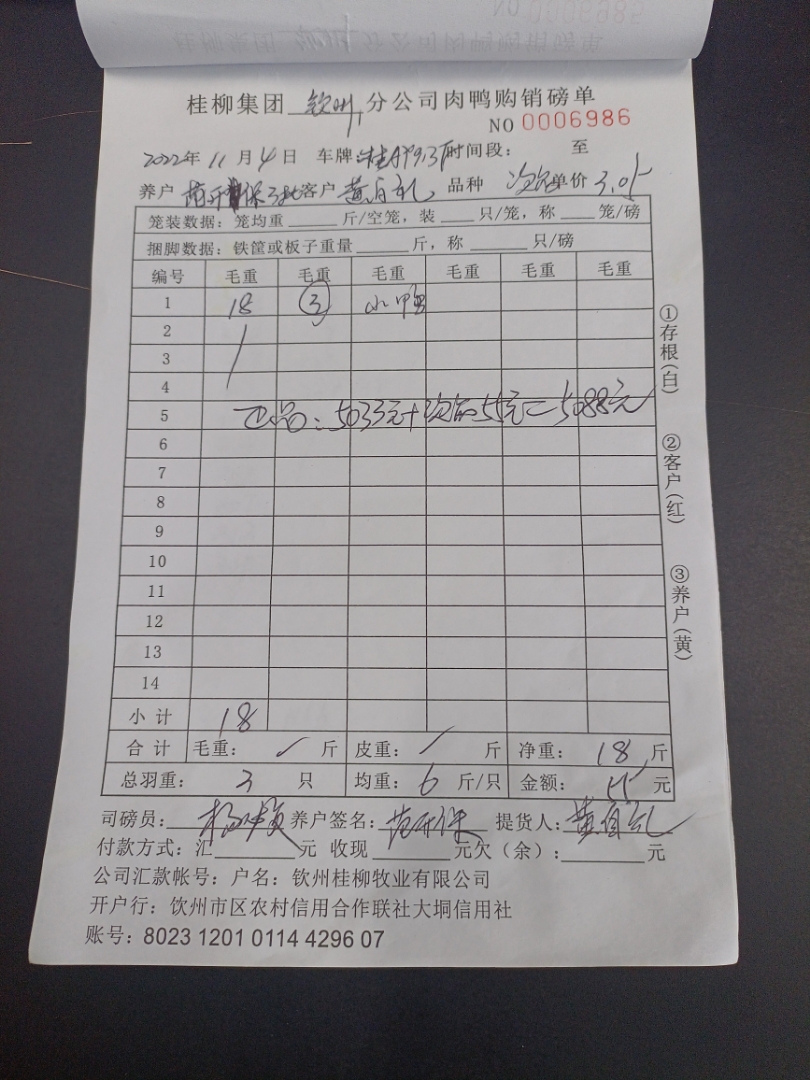 桂柳集团 钦州 分公司肉鸭购销磅单
NO 0006986
2022年 11月 4日 车牌: 时间段: 至
养户 客户 黄自礼 品种 次品 单价 3.05
笼装数据: 笼均重 斤/空笼, 装 只/笼, 称 笼/磅
捆脚数据: 铁筐或板子重量 斤, 称 只/磅
编号 毛重 毛重 毛重 毛重 毛重 毛重
1 18 ③ 小鸭
2
3
4
5 正品: 5033元+次品55元=5088元
6
7
8
9
10
11
12
13
14
小计 18
合计 毛重: 斤 皮重: 斤 净重: 18 斤
总羽重: 3 只 均重: 6 斤/只 金额: 55 元
司磅员: 养户签名: 范开保 提货人: 黄自礼
付款方式: 汇 元 收现 元欠(余): 元
公司汇款帐号: 户名: 钦州桂柳牧业有限公司
开户行: 钦州市区农村信用合作联社大垌信用社
账号: 8023 1201 0114 4296 07
①存根(白)
②客户(红)
③养户(黄)